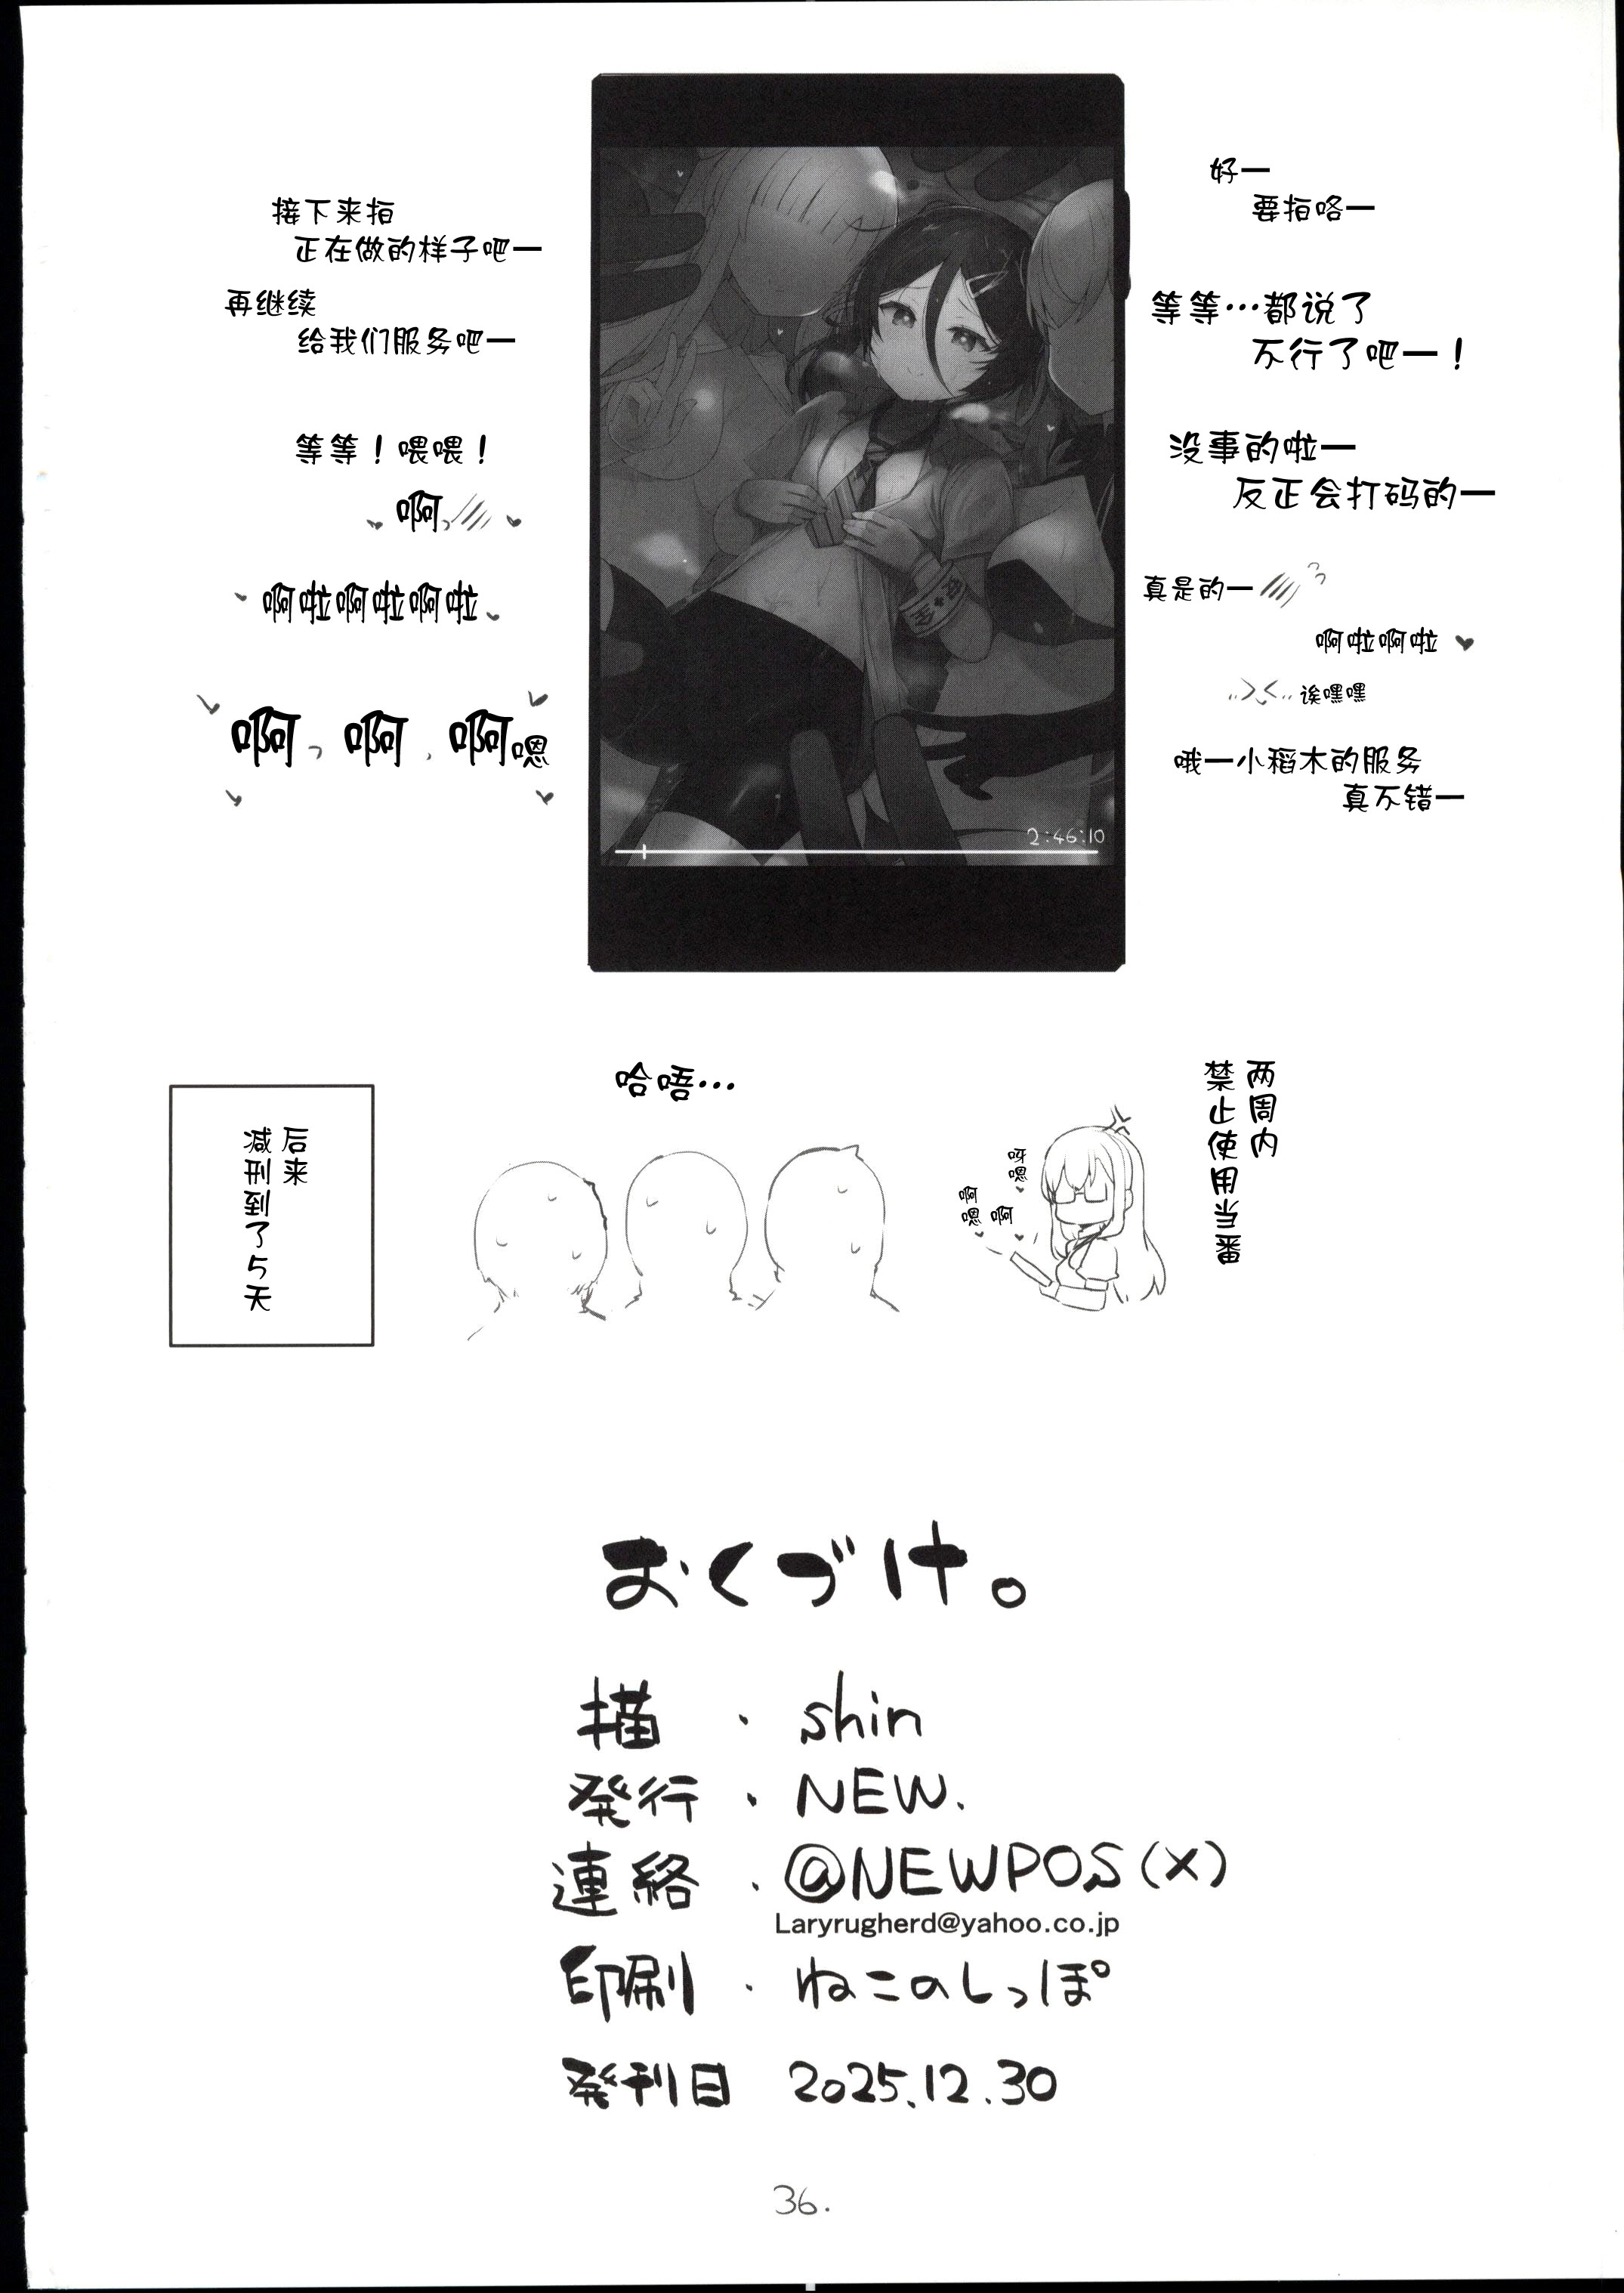 好一
要拍咯一
等等…都说了
不行了吧一！
没事的啦一
反正会打码的一
真是的一
啊啦啊啦
诶嘿嘿
哦一小稻木的服务
真不错一
接下来拍
正在做的样子吧一
再继续
给我们服务吧一
等等！喂喂！
啊
啊啦啊啦啊啦
啊っ啊，啊嗯
2:46:10
两周内
禁止使用当番
呀嗯
啊
啊嗯
哈唔…
后来
减刑到了5天
おくづけ。
描・shin
発行・NEW.
連絡・@NEWPOS(X)
Laryrugherd@yahoo.co.jp
印刷・ねこのしっぽ
発刊日 2025.12.30
36.